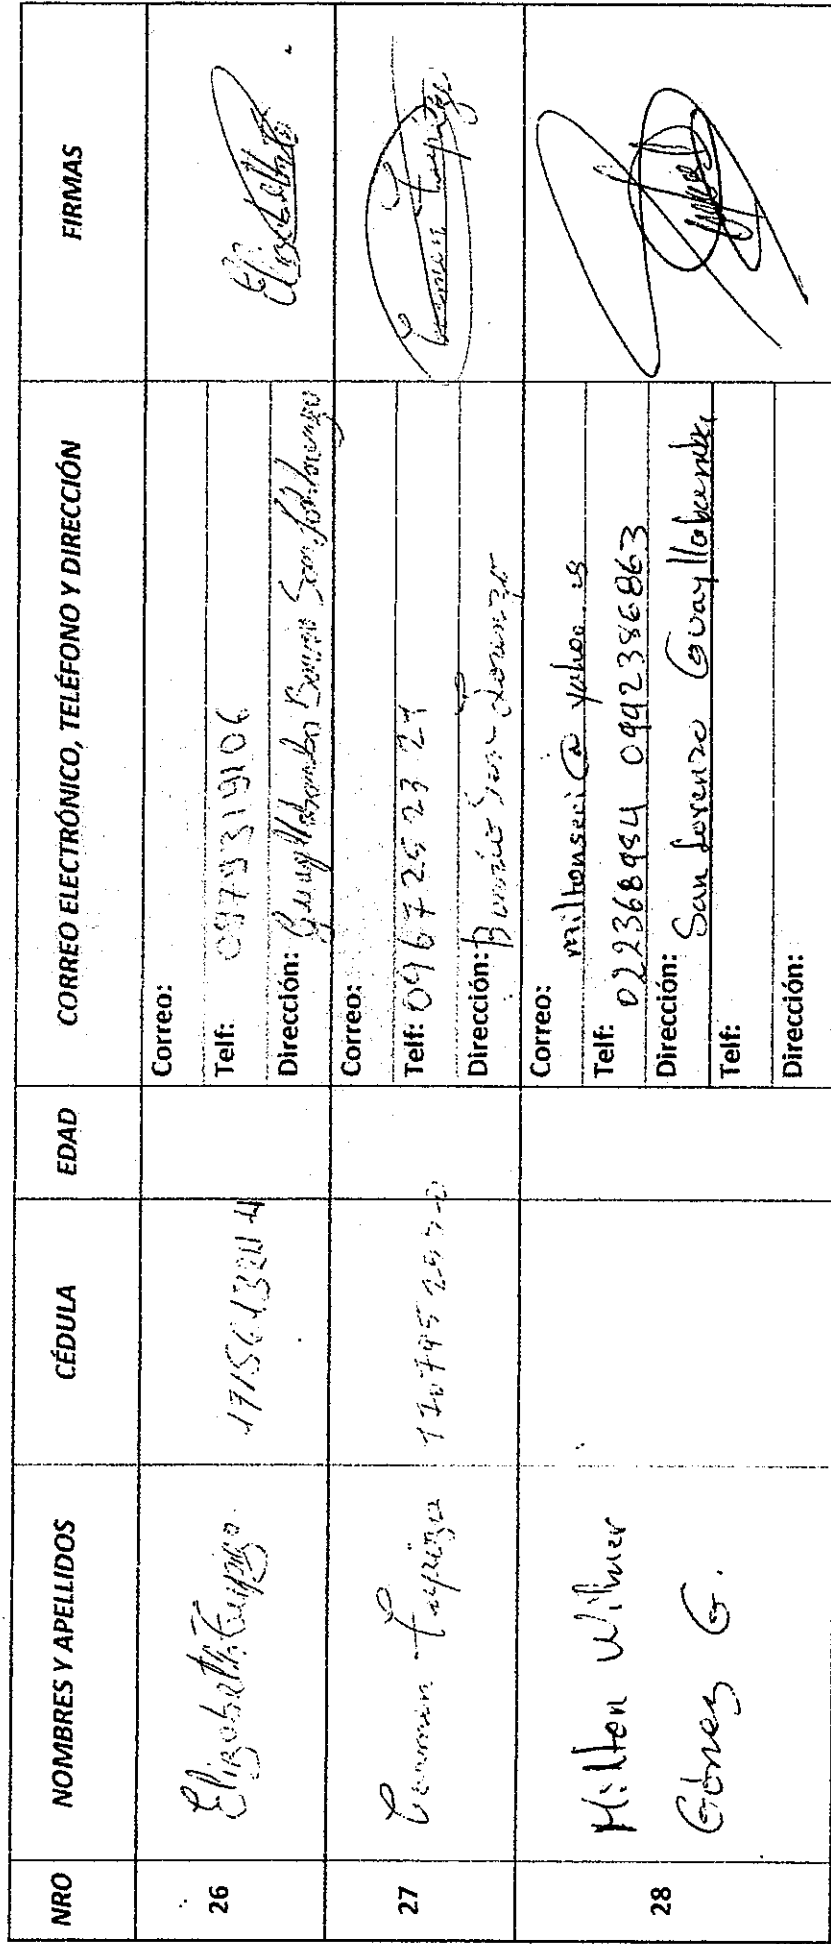 NRO NOMBRES Y APELLIDOS CÉDULA EDAD CORREO ELECTRÓNICO, TELÉFONO Y DIRECCIÓN FIRMAS
26 Elizabeth
Correo:
Telf: 0979319106
Dirección: Guayllabamba Barrio San Lorenzo
Elizabeth
27 Carmen
Correo:
Telf: 0967252321
Dirección: Barrio San Lorenzo
Carmen
28 Milton Wilmer
Gómez G.
Correo: miltonseci@yahoo.es
Telf: 022368954 0992386863
Dirección: San Lorenzo Guayllabamba
Telf:
Dirección: